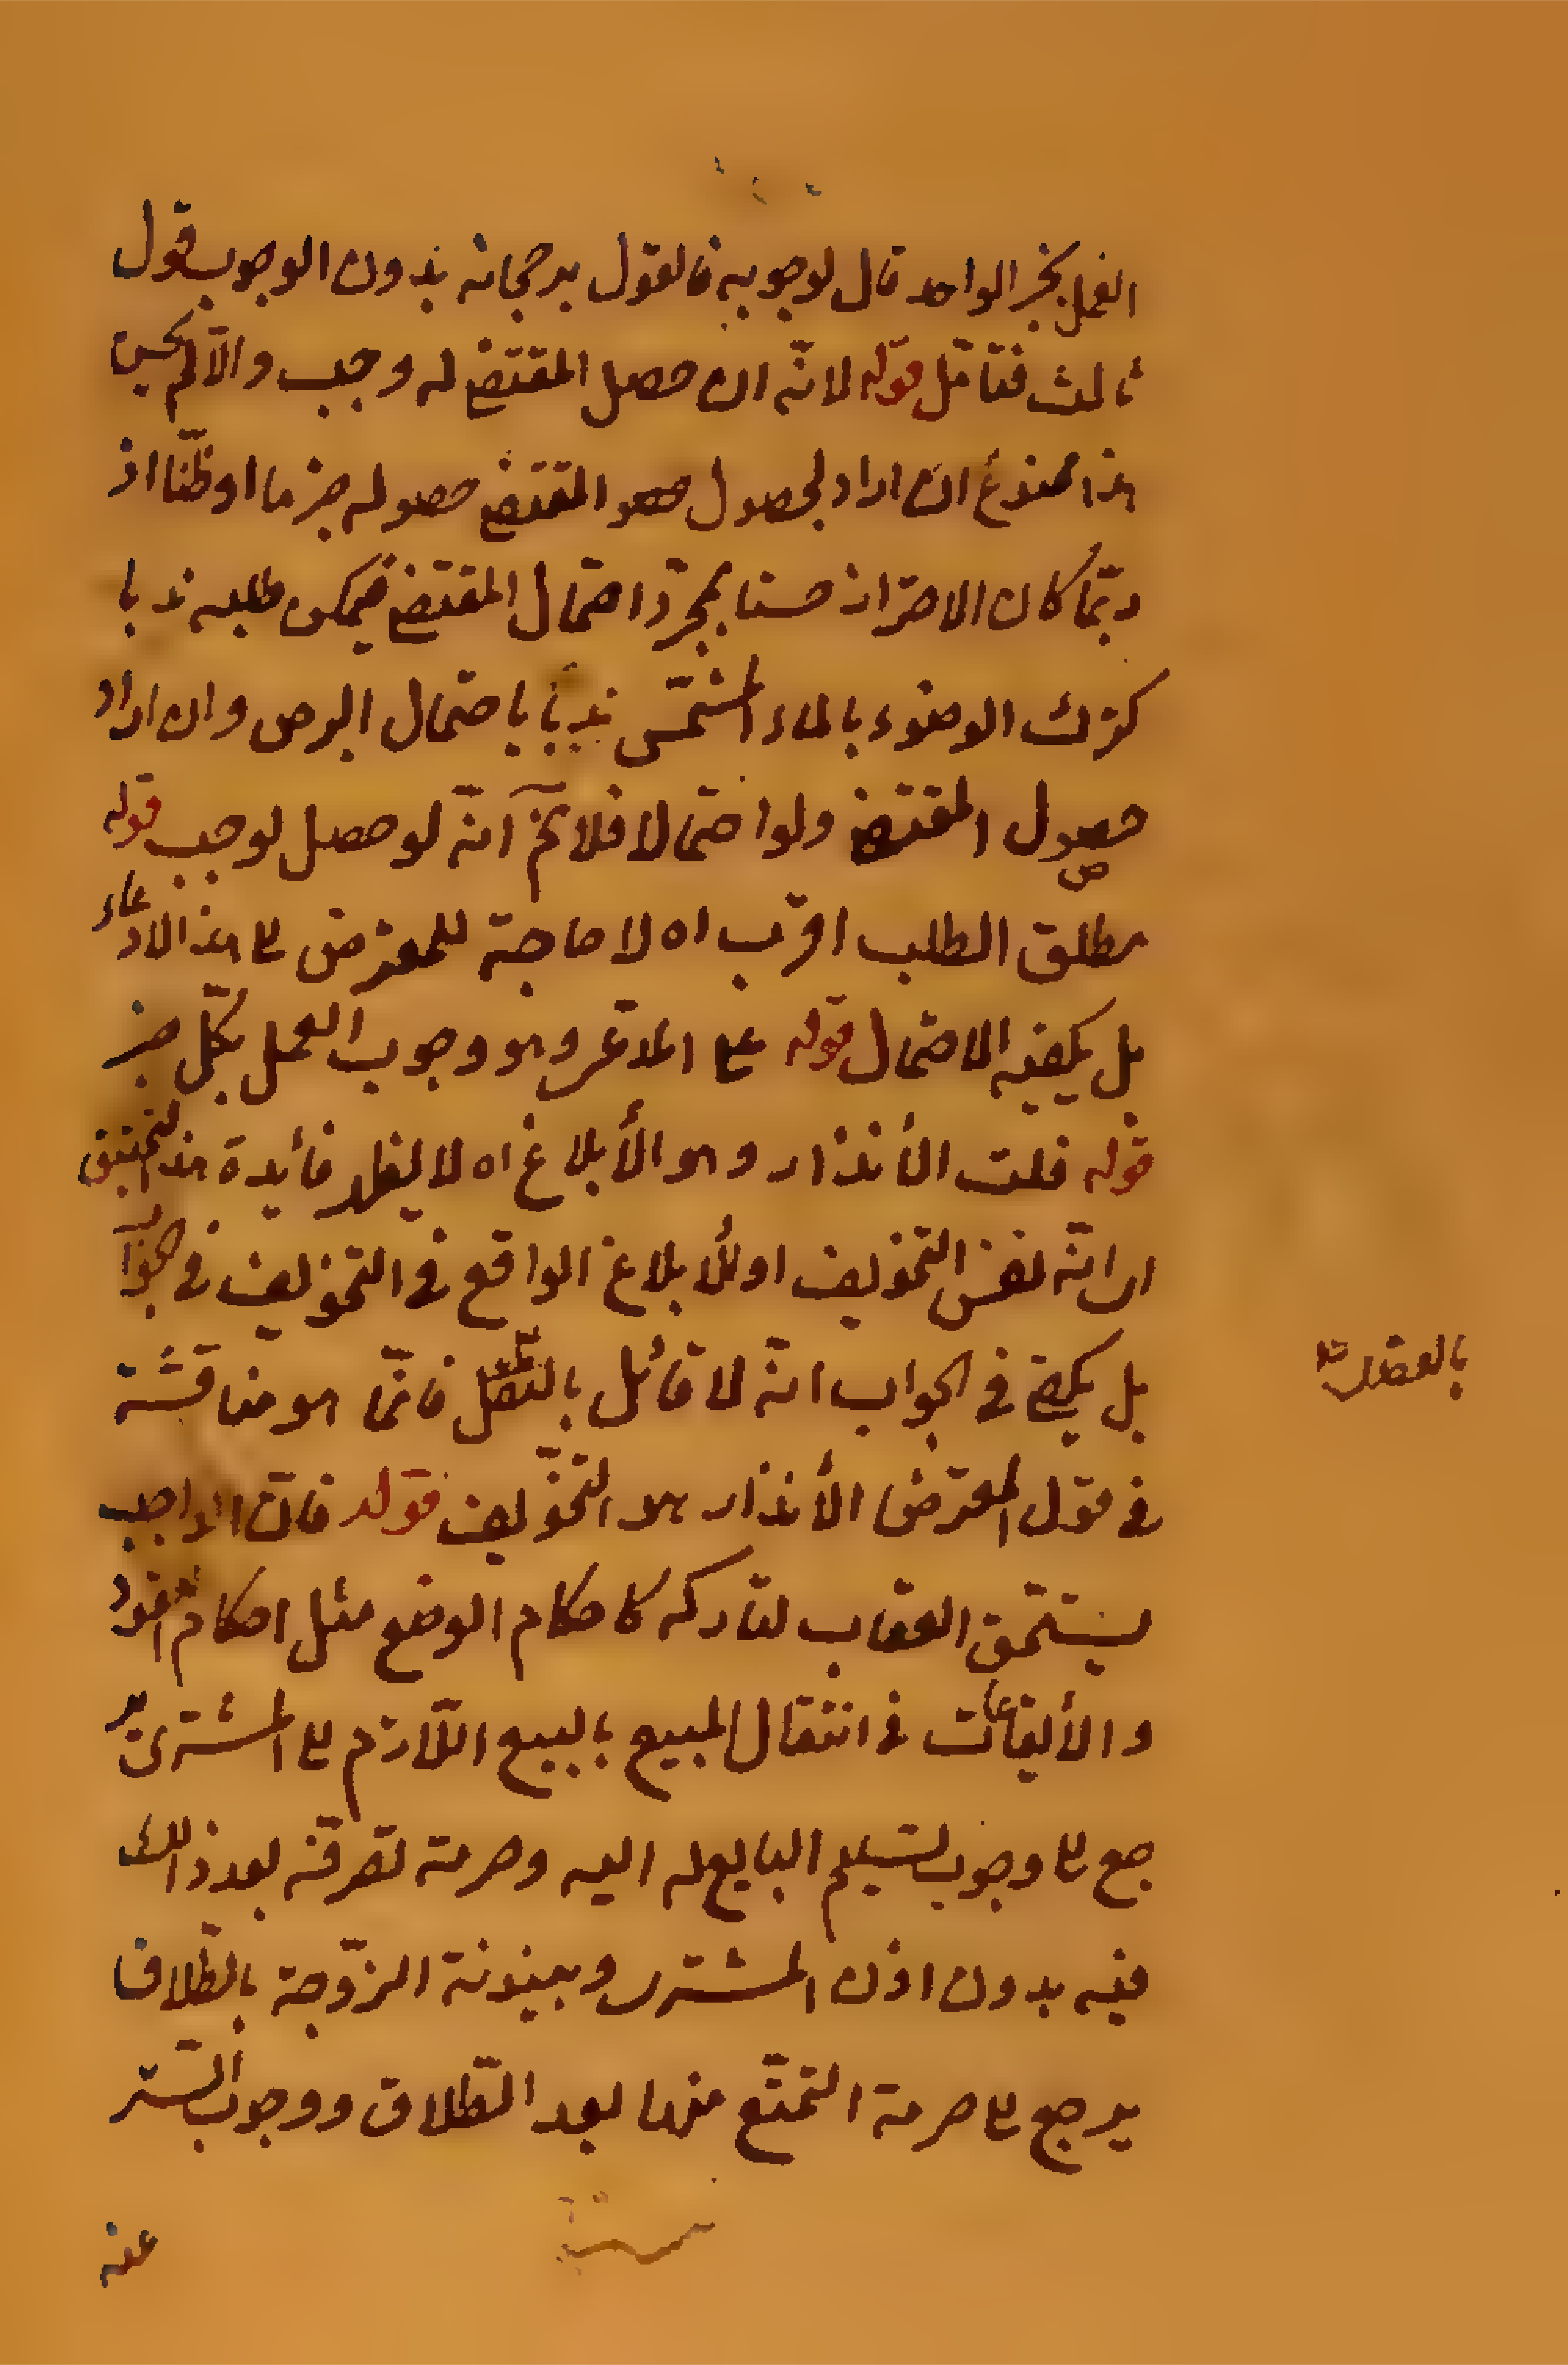 العمل بخبر الواحد قال لوجوبه فالقول برجحانه بدون الوجوب قول
ثالث فتأمّل قوله لانّه ان حصل المقتضى له وجب والّا لم يحسن
هذا ممنوع ان اراد لحصول المقتضى حصوله جزما او ظنّا اذ
ربّما كان الاحتراز حسنا بمجرّد احتمال المقتضى فيمكن طلبه ندبا
كترك الوضوء بالماء المشمّس ندبا باحتمال البرص وان اراد
حصول المقتضى ولو احتمالا فلا نم انّه لو حصل لوجب قوله
مطلق الطلب اقرب اه لا حاجة للمعترض الى هذا الادعاء
بل يكفيه الاحتمال قوله على المدّعى وهو وجوب العمل بكلّ خبر
قوله قلت الأنذار وهو الأبلاغ اه لا يظهر فائدة هذا التحقيق
اى انّه نفس التخويف او للأبلاغ الواقع فى التخويف فى الجواب
بل يكفى فى الجواب انّه لا قائل بالفصل فانّما هو مناقشة
فى قول المعترض الأنذار هو التخّويف قوله فانّ الواجب
يستحق العقاب لتاركه كاحكام الوضع مثل احكام العقود
والأيقاعات فى انتقال المبيع بالبيع اللّازم الى المشترى ير
جع الى وجوب تسليم البايع له اليه وحرمة تصرفه بعد ذلك
فيه بدون اذن المشترى وبينونة الزّوجة بالطّلاق
يرجع الى حرمة التمتّع منها بعد الطّلاق ووجوب التستر
عنه